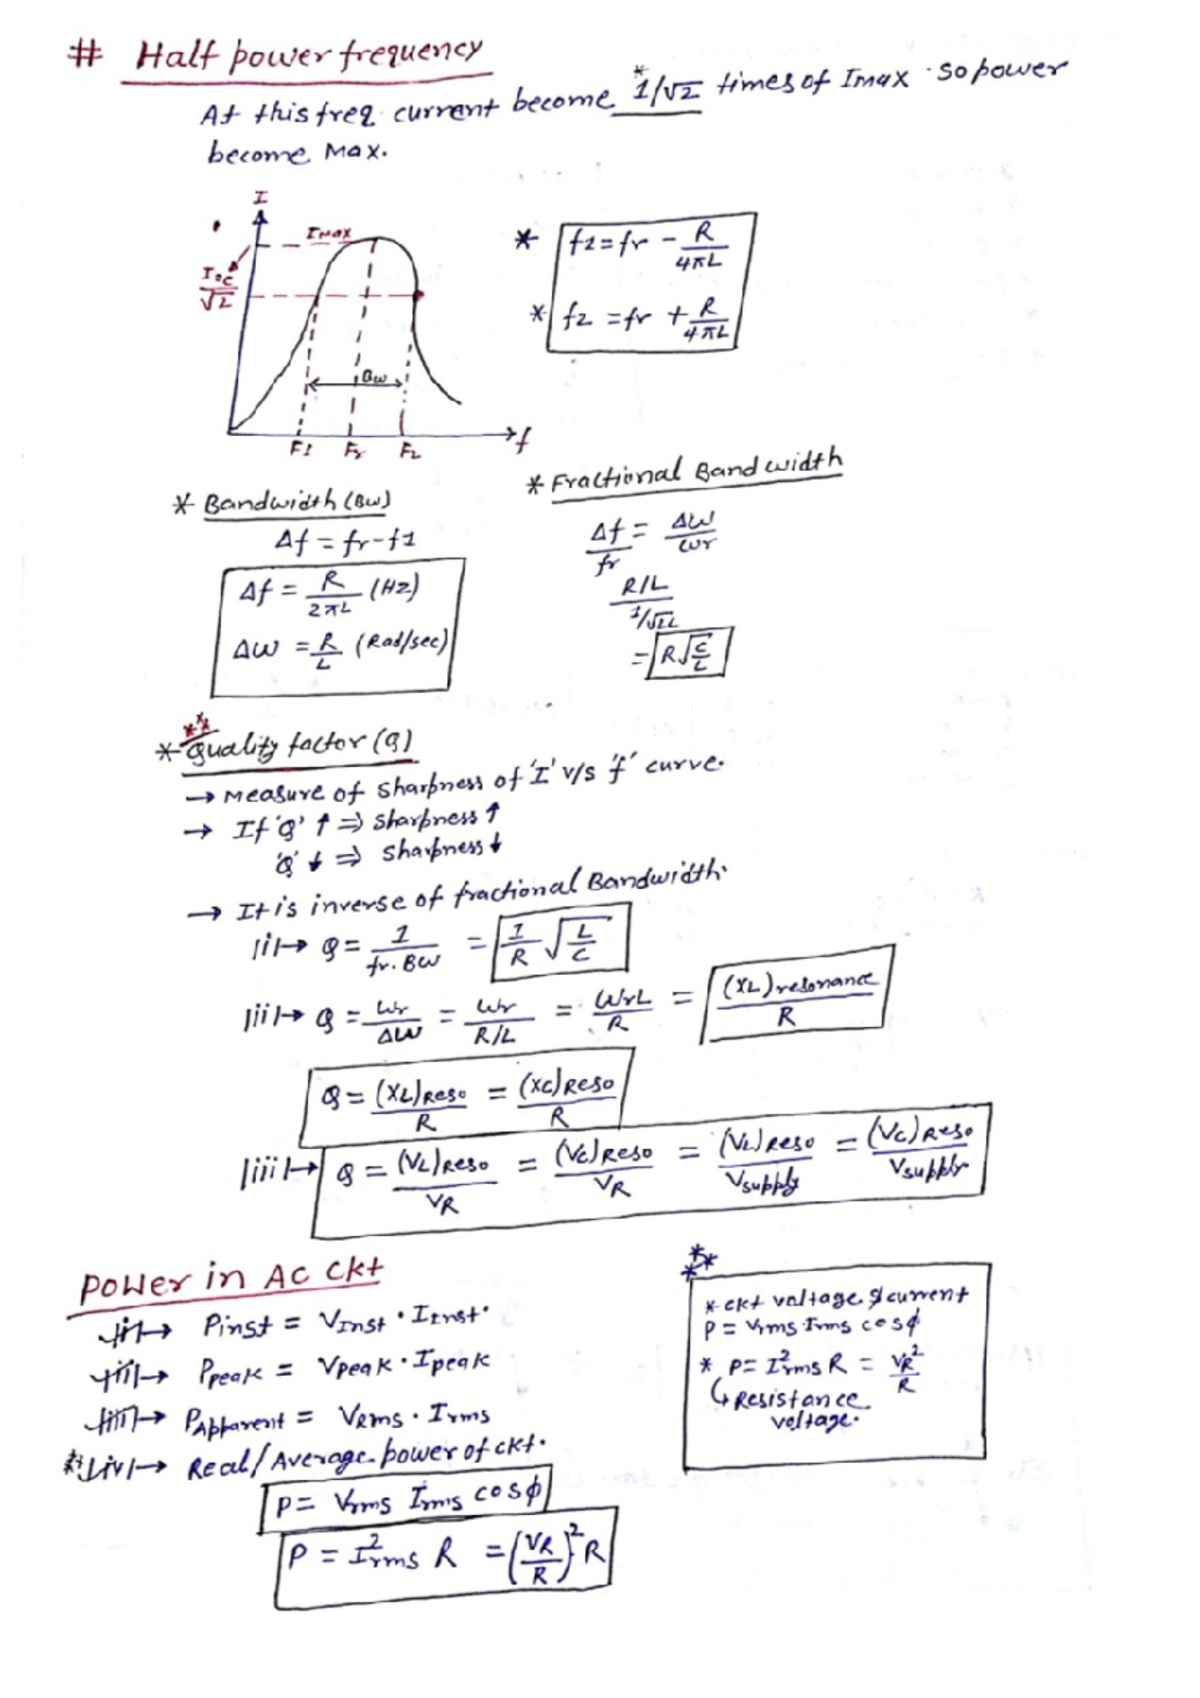 # Half power frequency
At this freq. current become 1/√2 times of Imax . so power
become Max.
I
Imax
Idc/√2
Bw
F1 Fr F2 f
* f2 = fr - R/4πL
* f2 = fr + R/4πL
* Bandwidth (Bw)
Δf = fr - f1
Δf = R/2πL (Hz)
Δw = R/L (Rad/sec)
* Fractional Band width
Δf/fr = Δw/wr
R/L / 1/√LC
= R√C/L
* Quality factor (Q)
→ Measure of sharpness of 'I' v/s 'f' curve.
→ If 'Q' ↑ ⇒ sharpness ↑
'Q' ↓ ⇒ sharpness ↓
→ It is inverse of fractional Bandwidth.
|i|→ Q = 1/fr. BW = 1/R √L/C
|ii|→ Q = wr/Δw = wr/R/L = wrL/R = (XL)resonance/R
Q = (XL)Reso/R = (XC)Reso/R
|iii|→ Q = (VL)Reso/VR = (VC)Reso/VR = (VL)Reso/Vsupply = (VC)Reso/Vsupply
Power in AC ckt
|i|→ Pinst = VInst . IInst.
|ii|→ Ppeak = Vpeak . Ipeak
|iii|→ PApparent = VRms . Irms
** |iv|→ Real/Average power of ckt.
P = Vrms Irms cosϕ
P = I²rms R = (VR/R)² R
* ckt voltage & current
P = Vrms Irms cosϕ
* P = I²rms R = VR²/R
↳ Resistance
voltage.